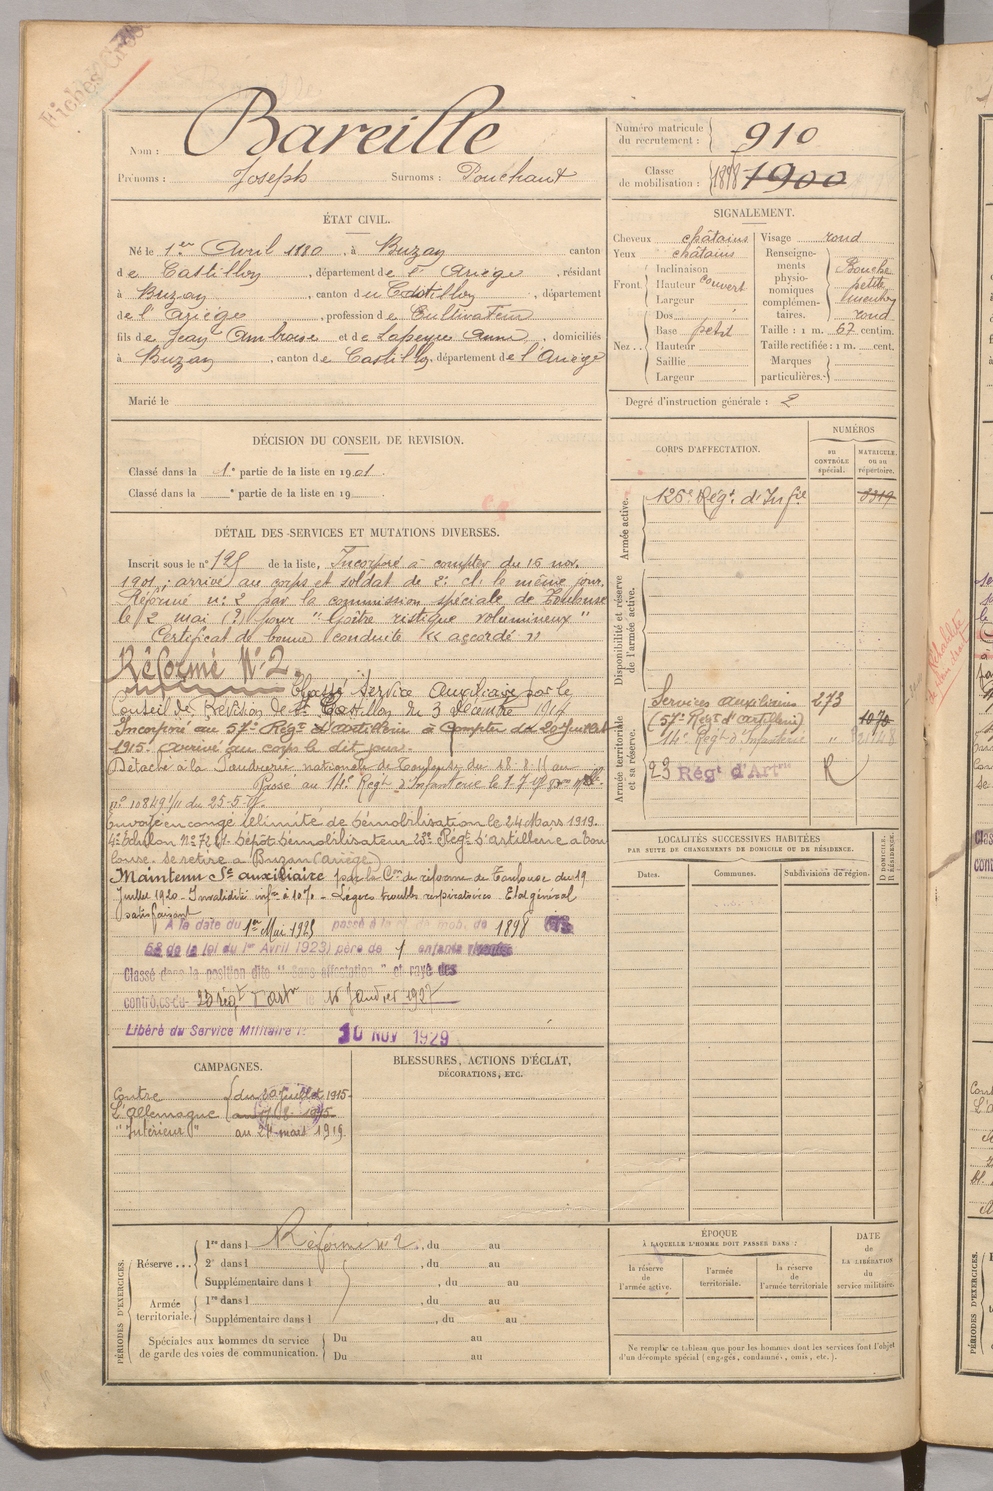 Fiches
Nom : Bareille
Prénoms : Joseph Surnoms : Pouchant
Numéro matricule du recrutement : 910
Classe de mobilisation : 1898 1900
ÉTAT CIVIL.
Né le 1er Avril 1880, à Buzan canton
de Castillon, département de l'Ariège, résidant
à Buzan, canton du Castillon, département
de l'Ariège, profession de Cultivateur
fils de Jean Ambroise et de Lapeyre Anne, domiciliés
à Buzan, canton de Castillon, département de l'Ariège
Marié le
SIGNALEMENT.
Cheveux châtains
Yeux châtains
Front Inclinaison
Hauteur couvert
Largeur
Nez Dos
Base petit
Hauteur
Saillie
Largeur
Visage rond
Renseignements physionomiques complémentaires. Bouche petite menton rond
Taille : 1 m. 67 centim.
Taille rectifiée : 1 m. cent.
Marques particulières.
Degré d'instruction générale : 2
DÉCISION DU CONSEIL DE REVISION.
Classé dans la 1e partie de la liste en 1901.
Classé dans la e partie de la liste en 19 .
CORPS D'AFFECTATION.
NUMÉROS
au CONTRÔLE spécial.
MATRICULE ou au répertoire.
Armée active.
126e Régt d'Infie
Disponibilité et réserve de l'armée active.
Armée territoriale et sa réserve.
Services auxiliaires 273
(57e Régt d'artillerie) 1070
14e Régt d'Infanterie "
23 Régt d'Artrie R
DÉTAIL DES SERVICES ET MUTATIONS DIVERSES.
Inscrit sous le n° 125 de la liste, Incorporé à compter du 16 nov.
1901, arrivé au corps et soldat de 2e cl. le même jour.
Réformé n° 2 par la commission spéciale de Toulouse
le 2 mai (?) pour "Goître kistique volumineux"
Certificat de bonne conduite "accordé"
Réformé N°2
Classé Service Auxiliaire par le
Conseil de Révision de Castillon du 3 décembre 1914
Incorporé au 57e Régt d'artillerie à compter du 20 Juillet
1915. arrivé au corps le dit jour.
Détaché à la Poudrerie nationale de Toulouse du 18-8-15 au
Passé au 14e Régt d'Infanterie le 1-7-17
n° 10849 1/11 du 25-5-17.
Envoyé en congé illimité de démobilisation le 24 Mars 1919.
4e Échelon N° 7281. dépôt démobilisateur 23e Régt d'artillerie à Toulouse. se retire à Buzan (Ariège)
Maintenu Sce auxiliaire par la Con de réforme de Toulouse du 19
Juillet 1920 - Invalidité infre à 10% - Légers troubles respiratoires. Etat général
satisfaisant
A la date du 1er Mai 1923 passé à la cl. de mob. de 1898
58 de la loi du 1er Avril 1923) père de 1 enfants
Classé dans la position dite "sans affectation" et rayé des
contrôles du 23 régt d'artie le 15 Janvier 1927
Libéré du Service Militaire le 10 NOV 1929
CAMPAGNES.
Contre L'Allemagne du 20 Juillet 1915
"Intérieur" au 24 mars 1919
BLESSURES, ACTIONS D'ÉCLAT, DÉCORATIONS, ETC.
LOCALITÉS SUCCESSIVES HABITÉES
PAR SUITE DE CHANGEMENTS DE DOMICILE OU DE RÉSIDENCE.
Dates. Communes. Subdivisions de région. D DOMICILE. R RÉSIDENCE.
PÉRIODES D'EXERCICES.
Réserve ... 1re dans l Réformé n° 2, du au
2e dans l , du au
Supplémentaire dans l , du au
Armée territoriale. 1re dans l , du au
Supplémentaire dans l , du au
Spéciales aux hommes du service de garde des voies de communication. Du au
Du au
ÉPOQUE
À LAQUELLE L'HOMME DOIT PASSER DANS :
la réserve de l'armée active.
l'armée territoriale.
la réserve de l'armée territoriale
DATE de LA LIBÉRATION du service militaire.
Ne remplir ce tableau que pour les hommes dont les services font l'objet
d'un décompte spécial (engagés, condamnés, omis, etc.).
PÉRIODES D'EXERCICES